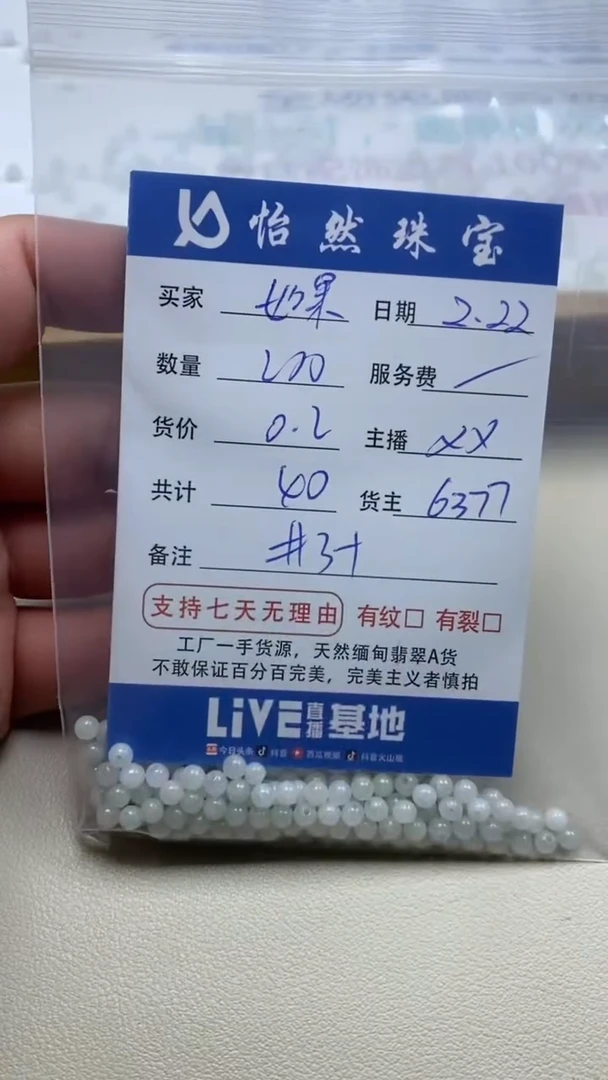 怡然珠宝
买家 如果 日期 2.22
数量 200 服务费 /
货价 0.2 主播 XX
共计 40 货主 6377
备注 #3十
支持七天无理由 有纹□ 有裂□
工厂一手货源，天然缅甸翡翠A货
不敢保证百分百完美，完美主义者慎拍
LiVE直播基地
今日头条 抖音 西瓜视频 抖音火山版